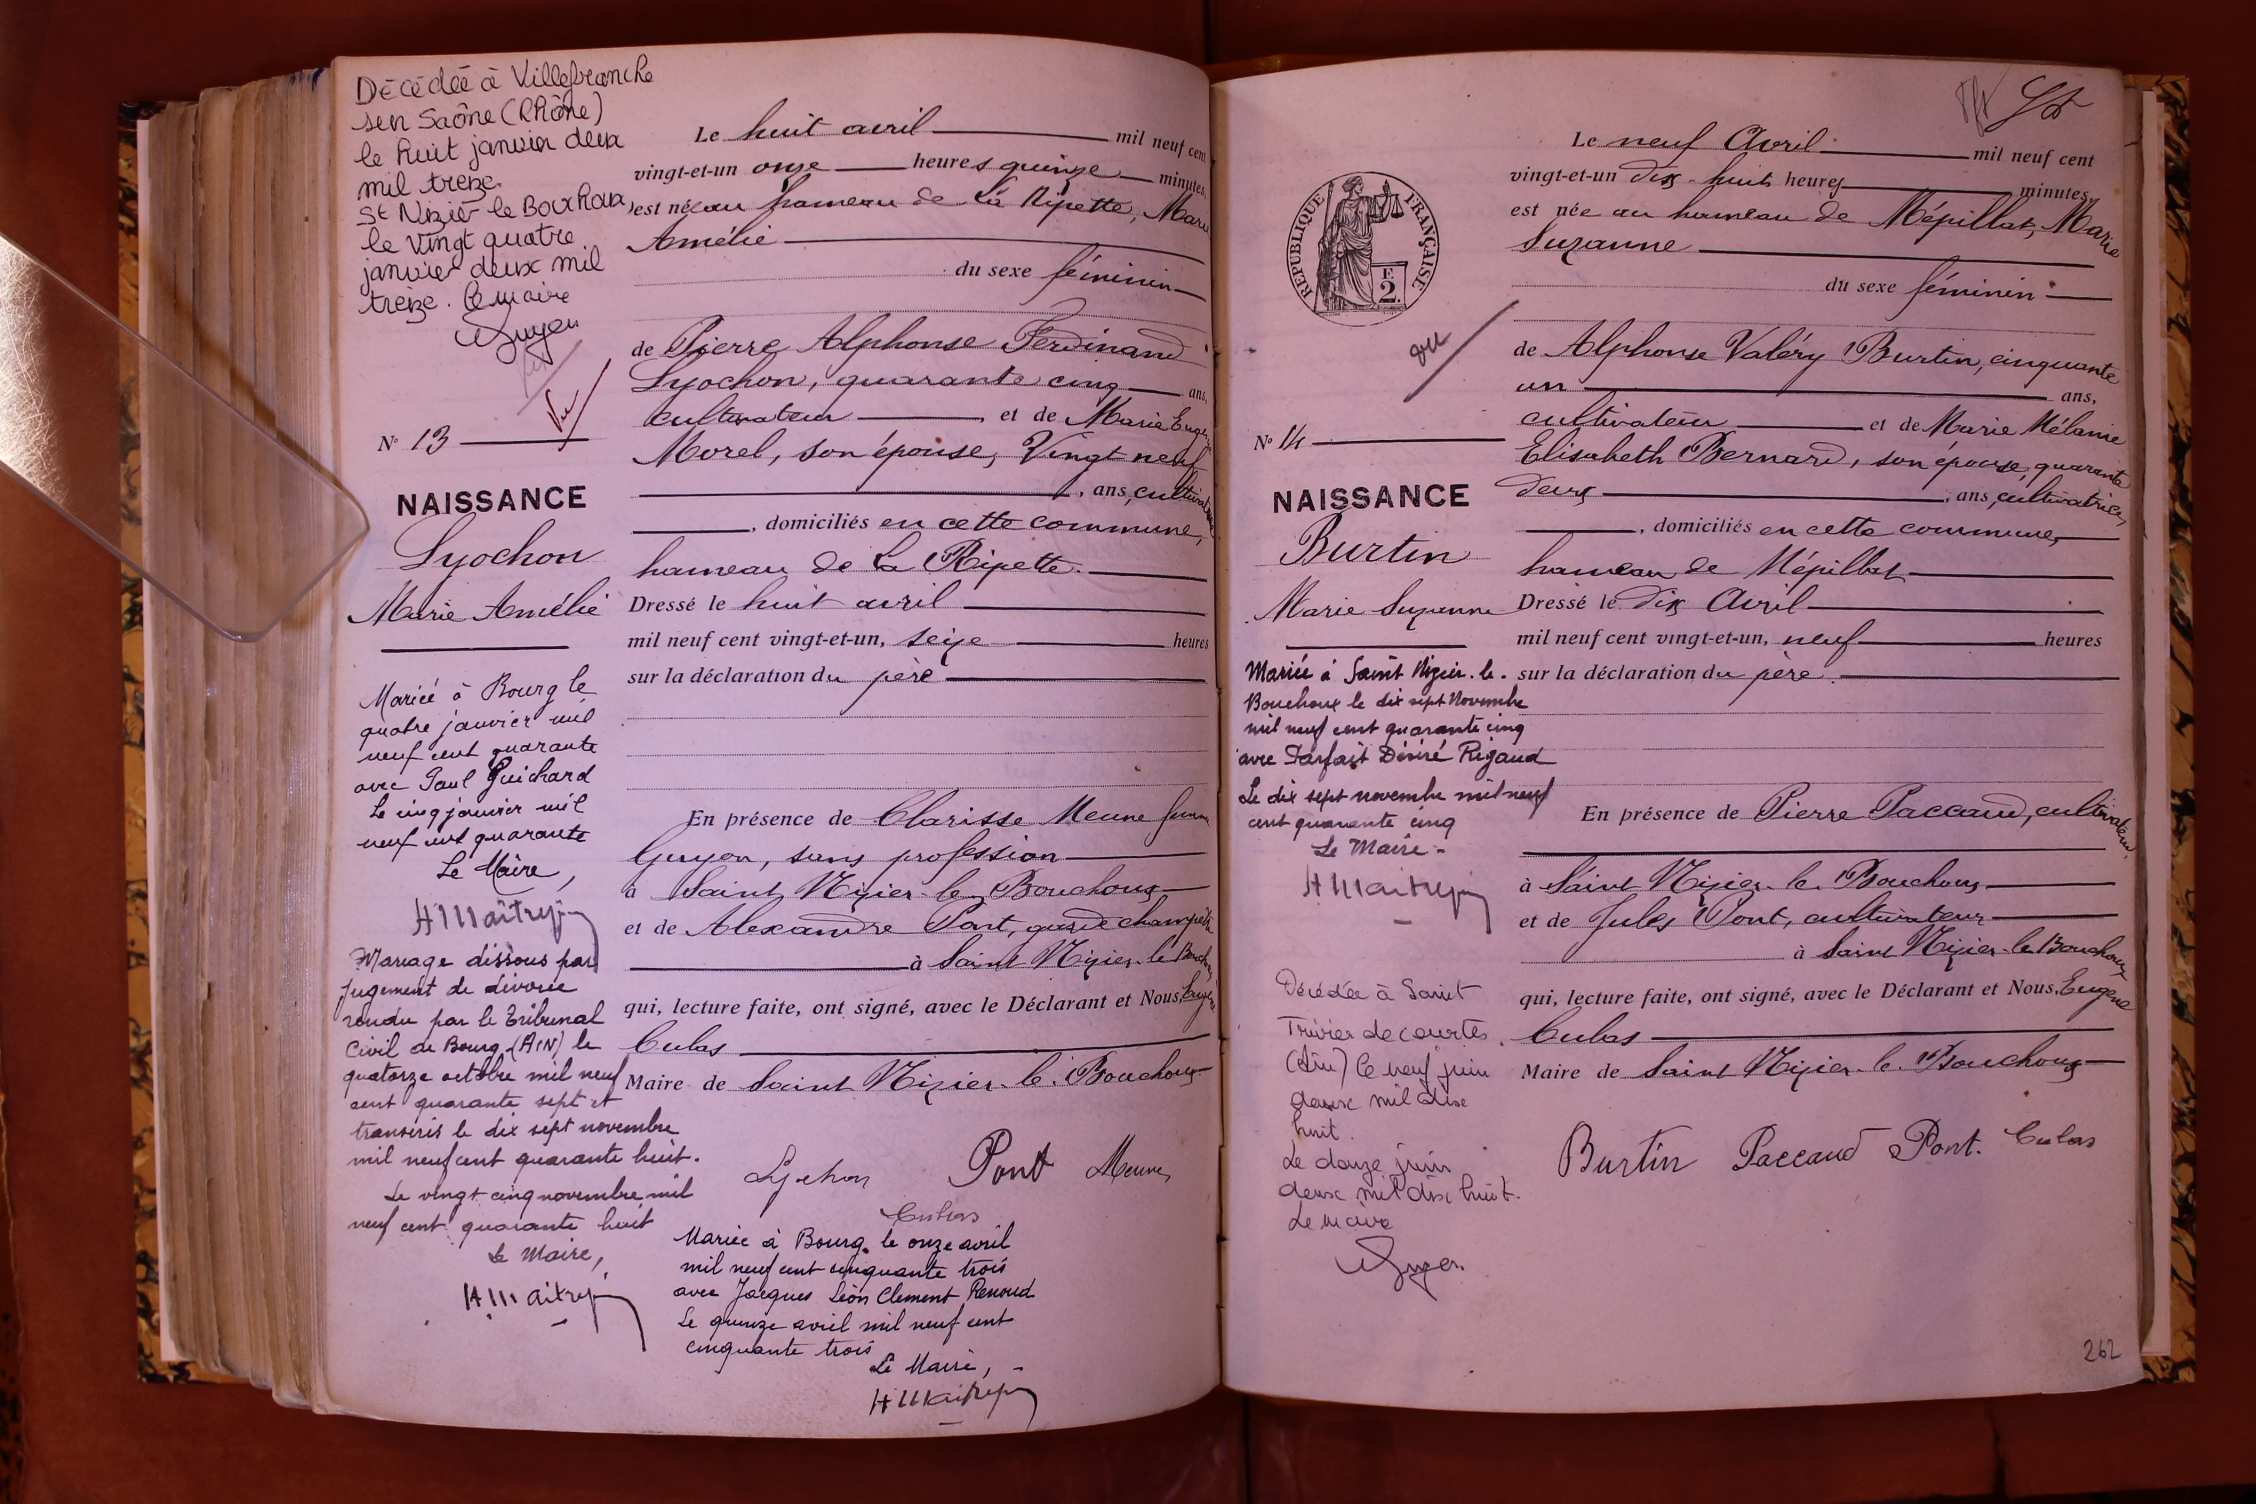 Décédée à Villefranche
sur Saône (Rhône)
le huit janvier deux
mil treize
St Nizier le Bouchoux,
le vingt quatre
janvier deux mil
treize. Le maire
Vu
N° 13
NAISSANCE
Lyochon
Marie Amélie
Mariée à Bourg le
quatre janvier mil
neuf cent quarante
avec Paul Guichard
Le cinq janvier mil
neuf cent quarante
Le Maire,
Mariage dissous par
jugement de divorce
rendu par le Tribunal
Civil de Bourg (AIN) le
quatorze octobre mil neuf
cent quarante sept et
transcris le dix sept novembre
mil neuf cent quarante huit.
Le vingt cinq novembre mil
neuf cent quarante huit
Le Maire,
Le huit avril mil neuf cent
vingt-et-un onze heures quinze minutes,
est née au hameau de La Ripette, Marie
Amélie
du sexe féminin
de Pierre Alphonse Ferdinand
Lyochon, quarante cinq ans,
cultivateur et de Marie Eugénie
Morel, son épouse, Vingt neuf
, ans, cultivatrice
, domiciliés en cette commune,
hameau de La Ripette.
Dressé le huit avril
mil neuf cent vingt-et-un, seize heures
sur la déclaration du père
En présence de Clarisse Meune femme
Guyon, sans profession
à Saint Nizier le Bouchoux
et de Alexandre Pont, garde champêtre
à Saint Nizier le Bouchoux
qui, lecture faite, ont signé, avec le Déclarant et Nous, Eugène
Culas
Maire de Saint Nizier le Bouchoux
Lyochon Pont Meune
Culas
Mariée à Bourg le onze avril
mil neuf cent cinquante trois
avec Jacques Léon Clement Renoud
Le quinze avril mil neuf cent
cinquante trois
Le Maire,
RÉPUBLIQUE FRANÇAISE
E.
2.
vu
N° 14
NAISSANCE
Burtin
Marie Suzanne
Mariée à Saint Nizier-le-
Bouchoux le dix sept Novembre
mil neuf cent quarante cinq
avec Parfait Désiré Rigaud
Le dix sept novembre mil neuf
cent quarante cinq
Le Maire
Décédée à Saint
Trivier de courtes
(Ain) le neuf juin
deux mil dix
huit.
Le douze juin
deux mil dix huit.
Le maire
Le neuf Avril mil neuf cent
vingt-et-un dix-huit heures minutes,
est née au hameau de Mépillat, Marie
Suzanne
du sexe féminin
de Alphonse Valéry Burtin, cinquante
un ans,
cultivateur et de Marie Mélanie
Elisabeth Bernard, son épouse, quarante
deux , ans, cultivatrice,
, domiciliés en cette commune,
hameau de Mépillat
Dressé le dix Avril
mil neuf cent vingt-et-un, neuf heures
sur la déclaration du père
En présence de Pierre Paccaud, cultivateur,
à Saint Nizier-le-Bouchoux
et de Jules Pont, cultivateur
à Saint Nizier-le-Bouchoux
qui, lecture faite, ont signé, avec le Déclarant et Nous, Eugène
Culas
Maire de Saint Nizier-le-Bouchoux
Burtin Paccaud Pont. Culas
262